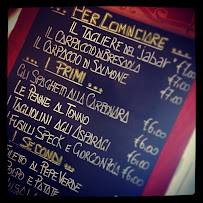 PER COMINCIARE
IL TAGLIERE DEL "Jabar" €7.00
IL CARPACCIO DI BRESAOLA €7.00
IL CARPACCIO DI SALMONE €7.00
I PRIMI
GLI SPAGHETTI ALLA CARBONARA €6.00
LE PENNE AL TONNO €6.00
I TAGLIOLINI AGLI ASPARAGI €6.00
I FUSILLI SPECK E GORGONZOLA €6.00
I SECONDI
FILETTO AL PEPE VERDE
E PATATE